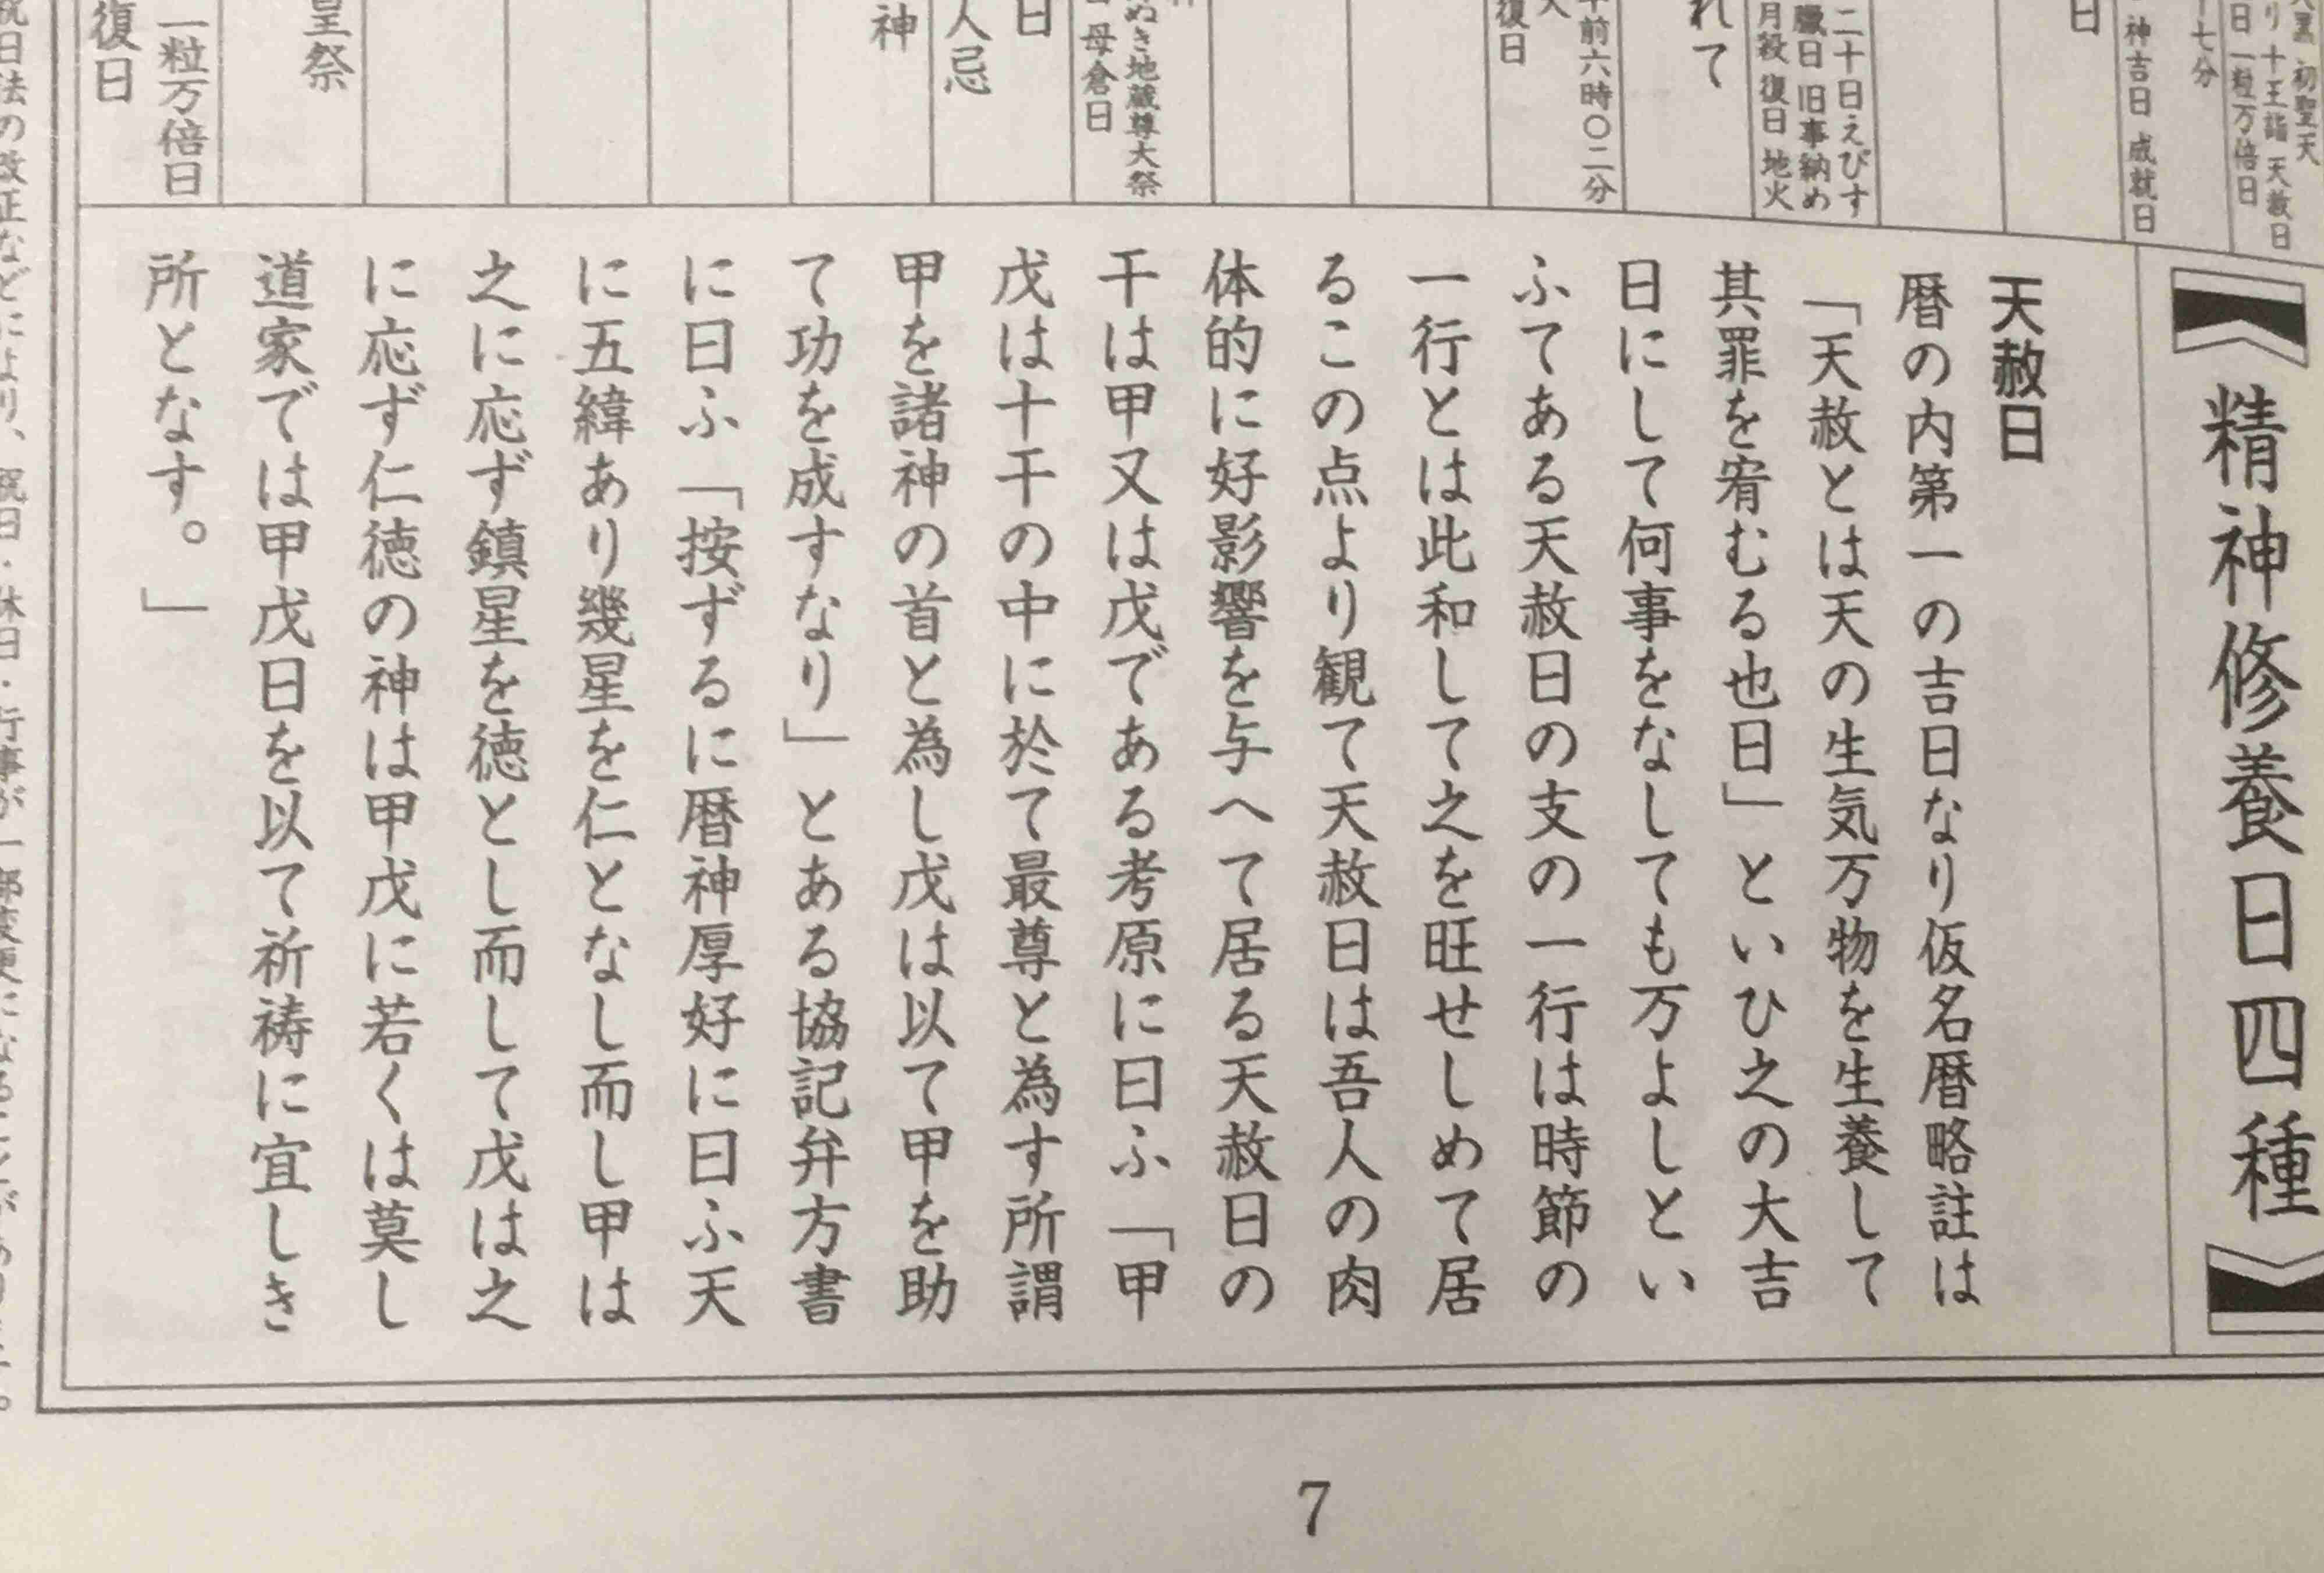 精神修養日四種
天赦日
暦の内第一の吉日なり仮名暦略註は
「天赦とは天の生気万物を生養して
其罪を宥むる也日」といひ之の大吉
日にして何事をなしても万よしとい
ふてある天赦日の支の一行は時節の
一行とは此和して之を旺せしめて居
るこの点より観て天赦日は吾人の肉
体的に好影響を与へて居る天赦日の
干は甲又は戊である考原に曰ふ「甲
戊は十干の中に於て最尊と為す所謂
甲を諸神の首と為し戊は以て甲を助
て功を成すなり」とある協記弁方書
に曰ふ「按ずるに暦神厚好に曰ふ天
に五緯あり幾星を仁となし而し甲は
之に応ず鎮星を徳とし而して戊は之
に応ず仁徳の神は甲戊に若くは莫し
道家では甲戊日を以て祈祷に宜しき
所となす。」
初聖天
り 十王詣 天赦日
日 一粒万倍日
十七分
神吉日 成就日
日
二十日えびす
臓日 旧事納め
月殺 復日 地火
れて
午前六時〇二分
復日
ぬき地蔵尊大祭
母倉日
日
人忌
神
皇祭
一粒万倍日
復日
祝日法の改正などにより、祝日・休日・行事が一部変更になることがあります。
7